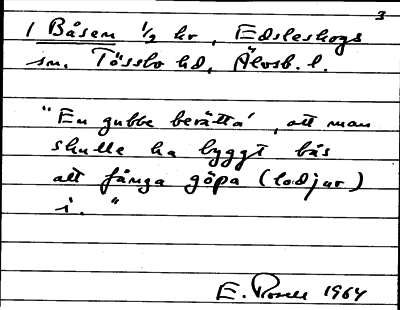 3
1 Båsen 1/2 hv, Edsleskogs
sn. Tössbo hd, Älvsb. l.
"En gubbe berätta', att man
skulle ha byggt bås
att fånga göpa (lodjur)
i."
E. 1964